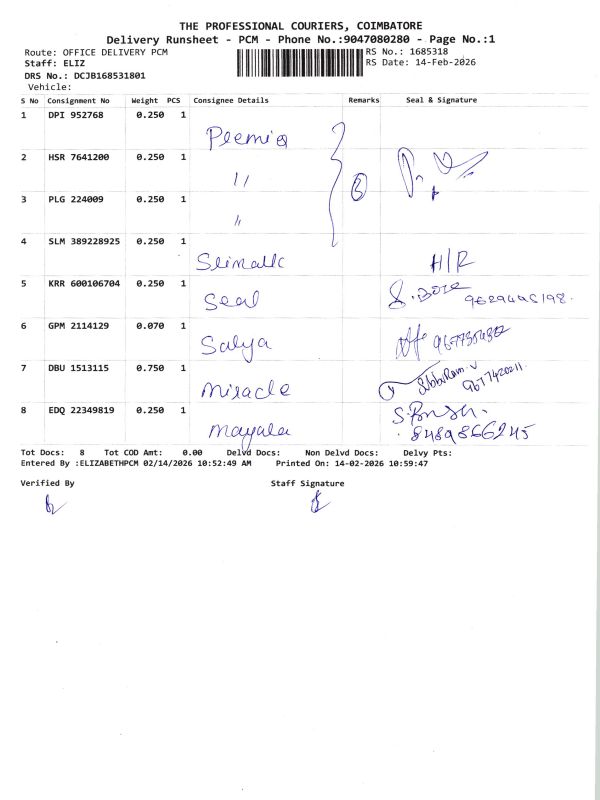 THE PROFESSIONAL COURIERS, COIMBATORE
Delivery Runsheet - PCM - Phone No.:9047080280 - Page No.:1
Route: OFFICE DELIVERY PCM RS No.: 1685318
Staff: ELIZ RS Date: 14-Feb-2026
DRS No.: DCJB168531801
Vehicle:
S No Consignment No Weight PCS Consignee Details Remarks Seal & Signature
1 DPI 952768 0.250 1 Peemia
2 HSR 7641200 0.250 1 11 3
3 PLG 224009 0.250 1 11
4 SLM 389228925 0.250 1 H/R
5 KRR 600106704 0.250 1 Seal S. Bose
6 GPM 2114129 0.070 1 Salya
7 DBU 1513115 0.750 1 Miracle SibbiRam. V
9677420211.
8 EDQ 22349819 0.250 1 Mayala
8489866245
Tot Docs: 8 Tot COD Amt: 0.00 Delvd Docs: Non Delvd Docs: Delvy Pts:
Entered By :ELIZABETHPCM 02/14/2026 10:52:49 AM Printed On: 14-02-2026 10:59:47
Verified By Staff Signature